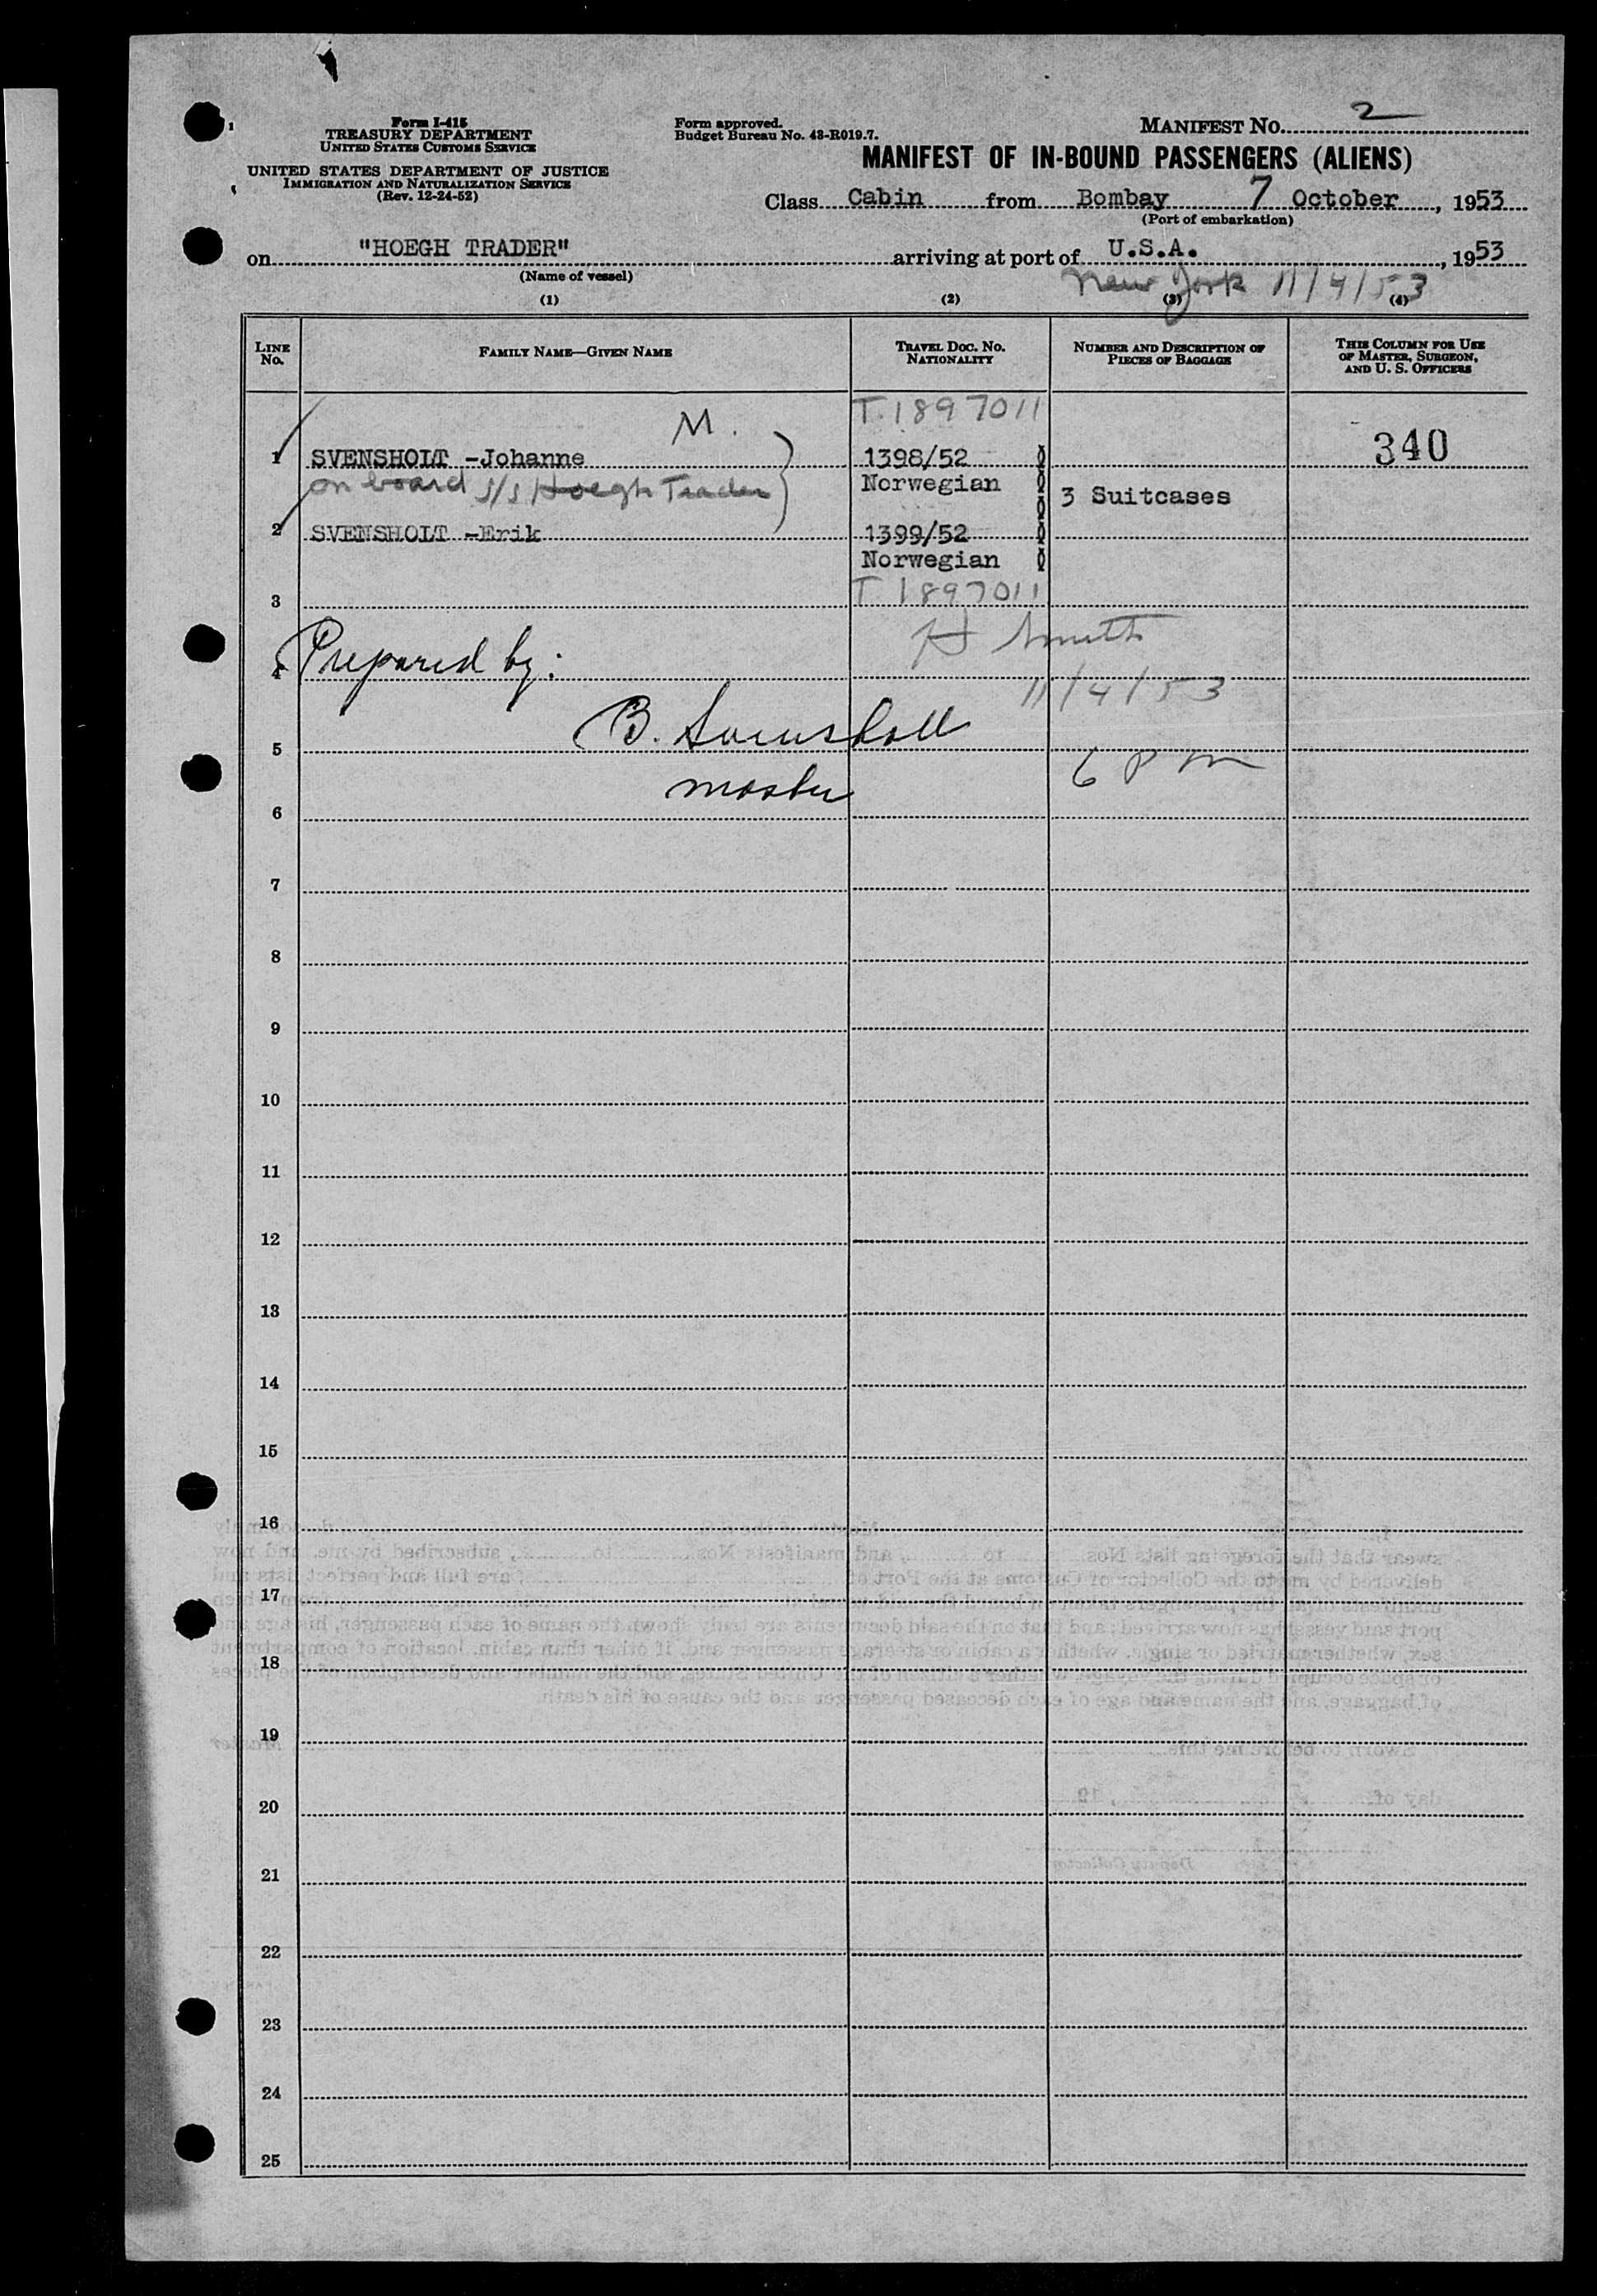 Form I-415
TREASURY DEPARTMENT
UNITED STATES CUSTOMS SERVICE
UNITED STATES DEPARTMENT OF JUSTICE
IMMIGRATION AND NATURALIZATION SERVICE
(Rev. 12-24-52)
Form approved.
Budget Bureau No. 43-R019.7.
MANIFEST NO. 2
MANIFEST OF IN-BOUND PASSENGERS (ALIENS)
Class Cabin from Bombay 7 October, 1953
(Port of embarkation)
on "HOEGH TRADER" arriving at port of U.S.A., 1953
(Name of vessel)
New York 11/4/53
(1) (2) (3) (4)
LINE NO.
FAMILY NAME—GIVEN NAME
TRAVEL DOC. NO. NATIONALITY
NUMBER AND DESCRIPTION OF PIECES OF BAGGAGE
THIS COLUMN FOR USE OF MASTER, SURGEON, AND U. S. OFFICERS
T.1897011
M.
1 SVENSHOLT -Johanne 1398/52 340
on board s/s Hoegh Trader Norwegian 3 Suitcases
2 SVENSHOLT -Erik 1399/52
Norwegian
3 T 1897011
H Smith
4 Prepared by:
11/4/53
5 B. Svensholt
6 P m
master
6
7
8
9
10
11
12
13
14
15
16
17
18
19
20
21
22
23
24
25